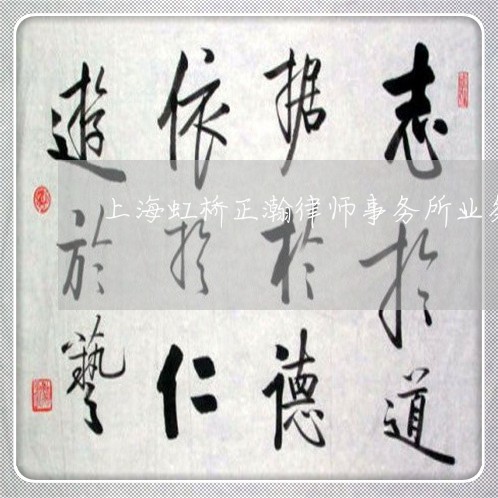 志於道
据於德
依於仁
遊於藝
上海虹桥正瀚律师事务所业